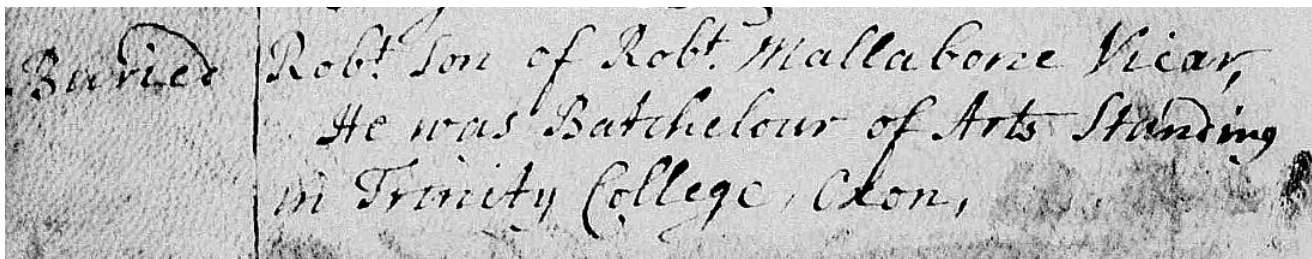 Buried Robt Son of Robt Mallabone Vicar,
He was Batchelour of Arts Standing
in Trinity College, Oxon,